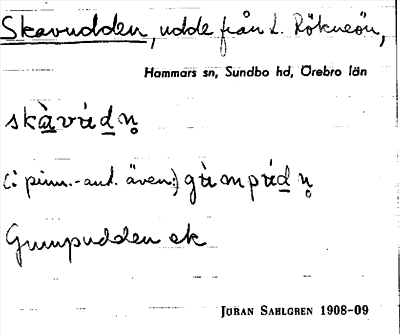 Skavudden, udde från L. Rökneön,
Hammars sn, Sundbo hd, Örebro län
skàvu̇́dn̥
(i pinn.-aud. även:) gu̇̀mpu̇́dn̥
Gumpudden ek
JÖRAN SAHLGREN 1908-09